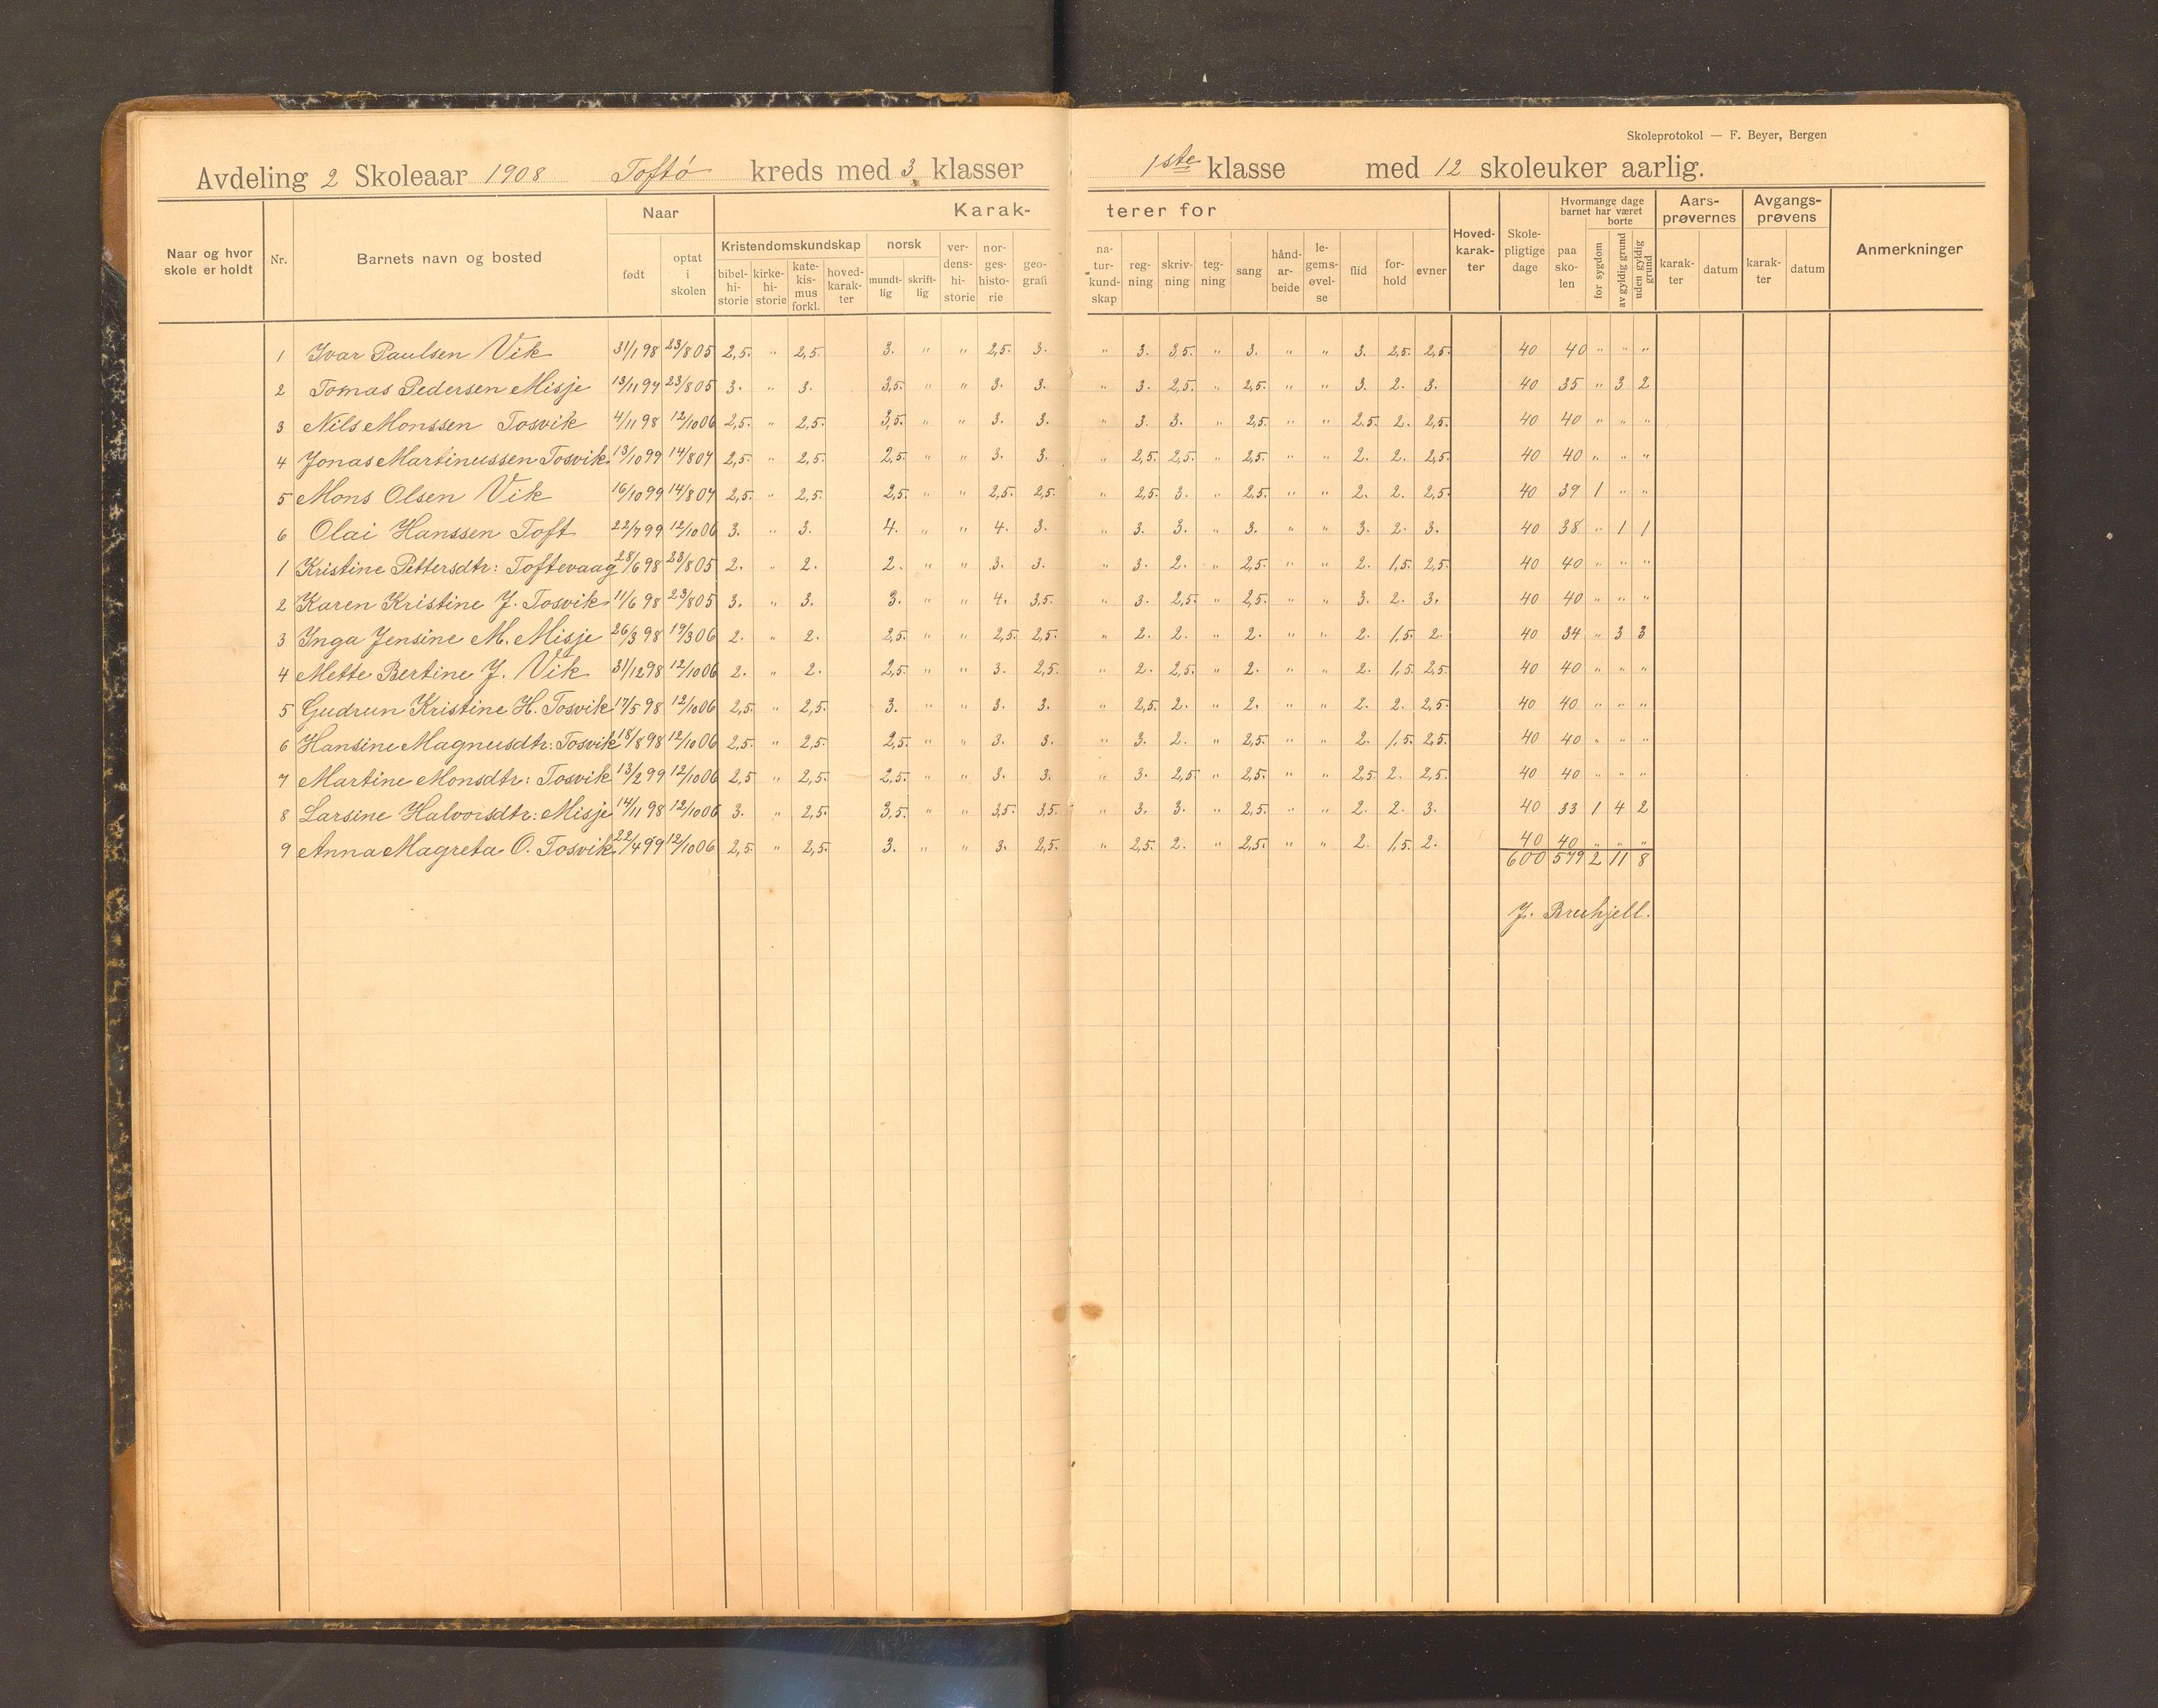 Skoleprotokol — F. Beyer, Bergen
Avdeling 2 Skoleaar 1908 Toftö kreds med 3 klasser 1ste klasse med 12 skoleuker aarlig.
Naar og hvor skole er holdt Nr. Barnets navn og bosted Naar født optat i skolen Karakterer for Kristendomskundskap bibelhistorie kirkehistorie katekismus forkl. hovedkarakter norsk mundtlig skriftlig verdenshistorie norgeshistorie geografi naturkundskap regning skrivning tegning sang håndarbeide legemsøvelse flid forhold evner Hovedkarakter Skolepligtige dage Hvormange dage barnet har været paa skolen borte for sygdom av gyldig grund uden gyldig grund Aarsprøvernes karakter datum Avgangsprøvens karakter datum Anmerkninger
1 Ivar Paulsen Vik 31/1 98 23/8 05 2,5. " 2,5. 3. " " 2,5. 3. " 3. 3,5. " 3. " " 3. 2,5. 2,5. 40 40 " " "
2 Tomas Pedersen Misje 13/11 97 23/8 05 3. " 3. 3,5. " " 3. 3. " 3. 2,5. " 2,5. " " 3. 2. 3. 40 35 " 3 2
3 Nils Monssen Tosvik 4/11 98 12/10 06 2,5. " 2,5. 3,5. " " 3. 3. " 3. 3. " 2,5. " " 2.5. 2. 2,5. 40 40 " " "
4 Jonas Martinussen Tosvik 13/10 99 14/8 07 2,5. " 2,5. 2,5. " " 3. 3. " 2,5. 2,5. " 2,5. " " 2. 2. 2,5. 40 40 " " "
5 Mons Olsen Vik 16/10 99 14/8 07 2,5. " 2,5. 2,5. " " 2,5. 2,5. " 2,5. 3. " 2,5. " " 2. 2. 2,5. 40 39 1 " "
6 Olai Hanssen Toft 22/7 99 12/10 06 3. " 3. 4. " " 4. 3. " 3. 3. " 3. " " 3. 2. 3. 40 38 " 1 1
1 Kristine Pettersdtr: Toftevaag 28/6 98 23/8 05 2. " 2. 2. " " 3. 3. " 3. 2. " 2,5. " " 2. 1,5. 2,5. 40 40 " " "
2 Karen Kristine J. Tosvik 11/6 98 23/8 05 3. " 3. 3. " " 4. 3,5. " 3. 2,5. " 2,5. " " 3. 2. 3. 40 40 " " "
3 Inga Jensine M. Misje 26/3 98 19/3 06 2. " 2. 2,5. " " 2,5. 2,5. " 2. 2. " 2. " " 2. 1,5. 2. 40 34 " 3 3
4 Mette Bertine J. Vik 31/12 98 12/10 06 2. " 2. 2,5. " " 3. 2,5. " 2. 2,5. " 2. " " 2. 1,5. 2,5. 40 40 " " "
5 Gudrun Kristine H. Tosvik 17/5 98 12/10 06 2,5. " 2,5. 3. " " 3. 3. " 2,5. 2. " 2. " " 2. 2. 2,5. 40 40 " " "
6 Hansine Magnusdtr: Tosvik 18/8 98 12/10 06 2,5. " 2,5. 2,5. " " 3. 3. " 3. 2. " 2,5. " " 2. 1,5. 2,5. 40 40 " " "
7 Martine Monsdtr: Tosvik 13/2 99 12/10 06 2,5 " 2,5. 2,5. " " 3. 3. " 3. 2,5. " 2,5. " " 2,5. 2. 2,5. 40 40 " " "
8 Larsine Halvorsdtr: Misje 14/11 98 12/10 06 3. " 2,5. 3,5. " " 3,5. 3,5. " 3. 3. " 2,5. " " 2. 2. 3. 40 33 1 4 2
9 Anna Magreta O. Tosvik 22/4 99 12/10 06 2,5. " 2,5. 3. " " 3. 2,5. " 2,5. 2. " 2,5. " " 2. 1,5. 2. 40 40 " " "
600 579 2 11 8
J. Bruhjell.